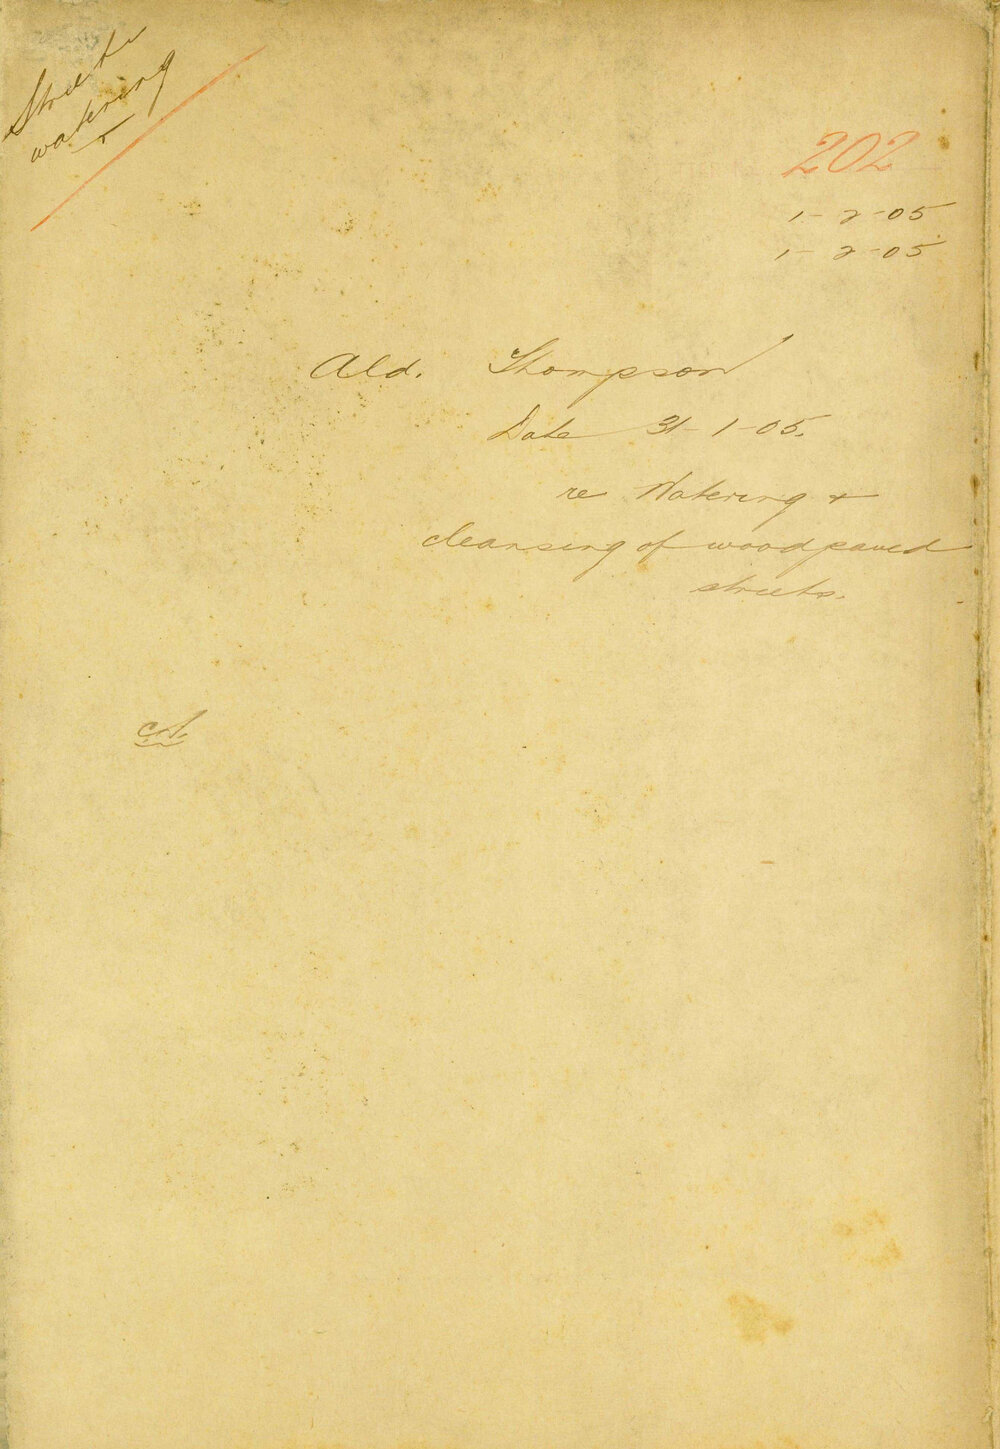 Streets
watering
202
1-2-05
1-2-05
Ald. Thompson
Date 31-1-05.
re Watering +
cleansing of woodpaved
streets.